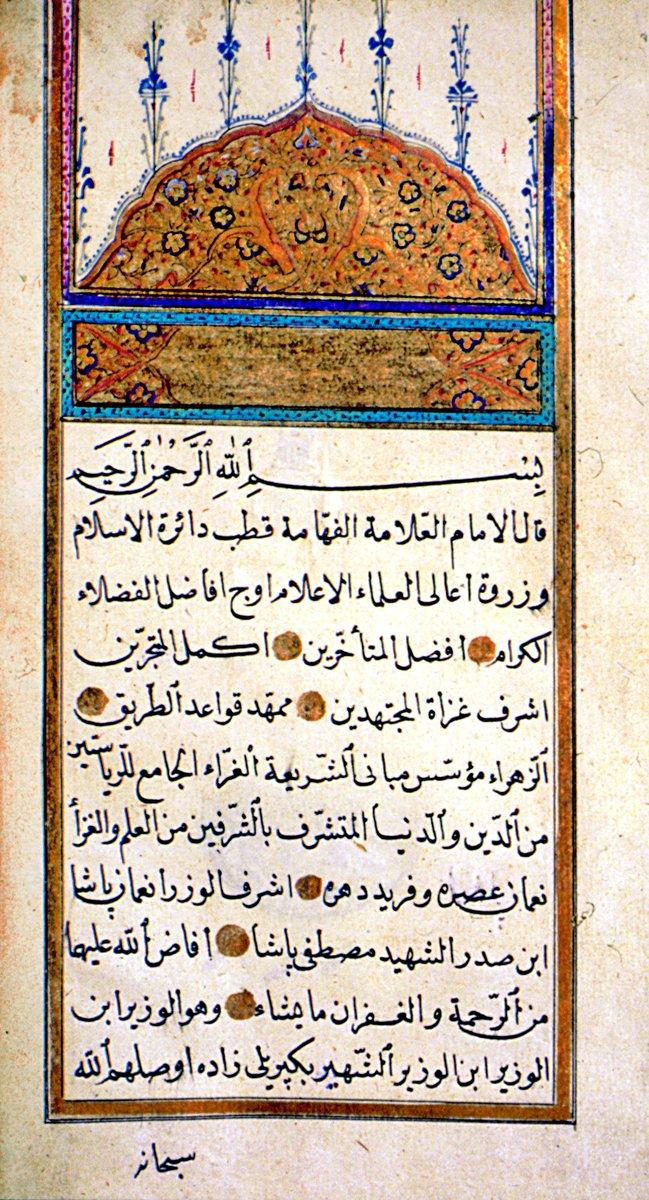 بِسْمِ ٱللّٰهِ ٱلرَّحْمٰنِ ٱلرَّحِيمِ
قال الامام العّلامة الفهّامة قطب دائرة الاسلام
وزروة اعالى العلماء الاعلام اوج افاضل الفضلاء
الكرام افضل المتأخّرين اكمل المتبحّرين
اشرف غزاة المجتهدين ممهّد قواعد ٱلطّريق
ٱلزّهراء مؤسّس مبانى ٱلشّريعة ٱلغرّاء الجامع للرّياستين
من ٱلدّين وٱلدّنيا المتشرّف بٱلشّرفين من العلم والغزأ
نعمان عصره وفريد دهره اشرف الوزرا نعمان پاشا
ابن صدر الشهيد مصطفى پاشا افاض ٱللّه عليهما
من ٱلرّحمة والغفران ما يشاء وهو الوزير ابن
الوزير ابن الوزير ٱلشّهير بكپريلى زاده اوصلهم ٱللّه
سبحانه